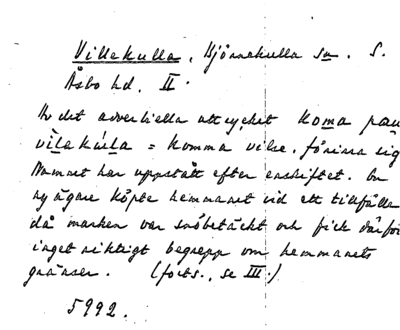 Villekulla, Bjärnekulla sn. S.
Åsbo hd. II.
Av det adverbiella uttrycket koma pau
vilakúlla = komma vilse, förirra sig
Namnet har uppstått efter enskiftet. En
ny ägare köpte hemmanet vid ett tillfälle
då marken var snöbetäckt och fick därför
inget riktigt begrepp om hemmanets
gränser. (forts., se III.)
5992.